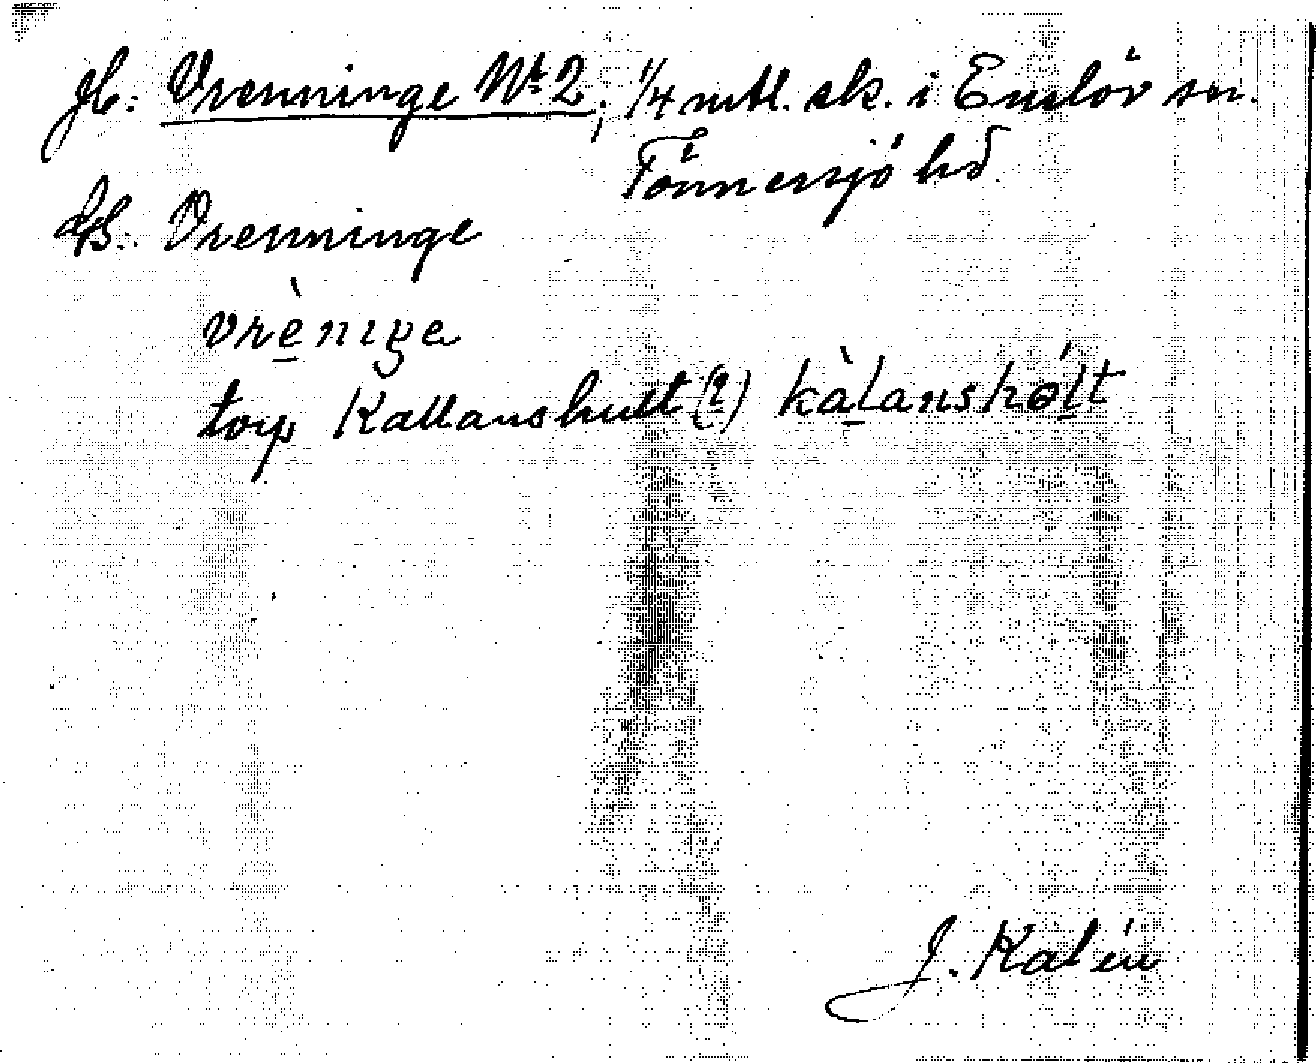 Jb: Vrenninge Nr 2; 1/4 mtl. sk. i Enslöv sn.
Tönnersjö hd
Vrenninge
vrènige
torp Kallanshult (?) kàlanshólt
J. Kalén